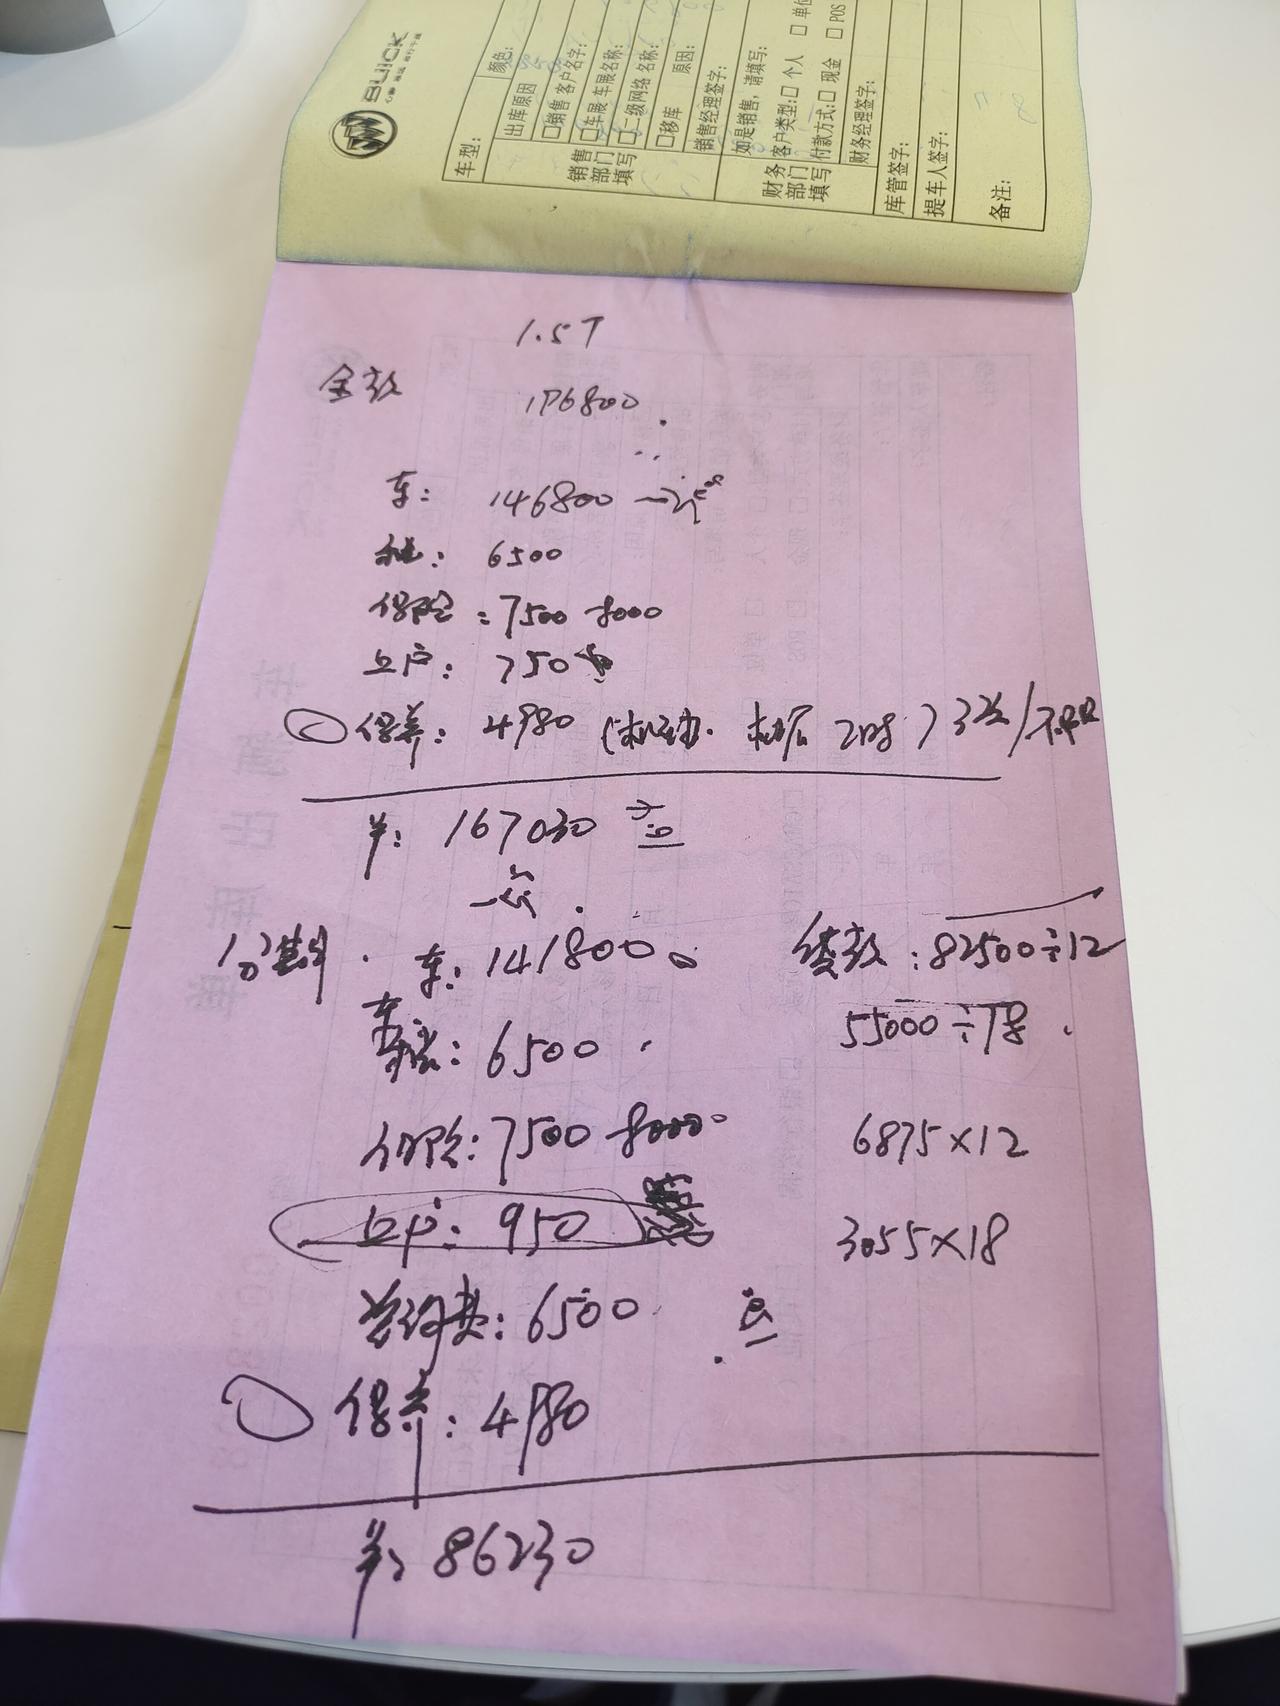 BUICK
心静 思远 志行千里
车型:
颜色:
出库原因
销售部门填写
□销售 客户名字:
□车展 车展名称:
□二级网络 名称:
□移库 原因:
销售经理签字:
财务部门填写
如是销售，请填写:
客户类型:□ 个人 □ 单位
付款方式:□ 现金 □ POS
财务经理签字:
库管签字:
提车人签字:
备注:
1.5T
全款 196800
车: 146800
税: 6500
保险: 7500-8000
上户: 750
保养: 4980 (机油. 机滤 工时) 3次/
共: 167030
分期 车: 141800
车税: 6500
保险: 7500-8000
上户: 950
6500
保养: 4980
共: 86230
贷款: 82500÷12
55000÷18
6875×12
3055×18